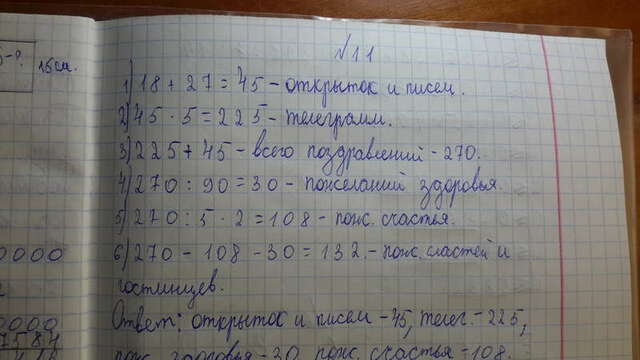 5-?.
15см.
№11
1) 18 + 27 = 45 - открыток и писем.
2) 45 · 5 = 225 - телеграмм.
3) 225 + 45 - всего поздравлений - 270.
4) 270 : 90 = 30 - пожеланий здоровья.
5) 270 : 5 · 2 = 108 - пож. счастья.
6) 270 - 108 - 30 = 132. - пож. сластей и
гостинцев.
Ответ: открыток и писем - 45, телег. - 225,
пож. здоровья - 30, пож. счастья - 108
0000
0000
7584